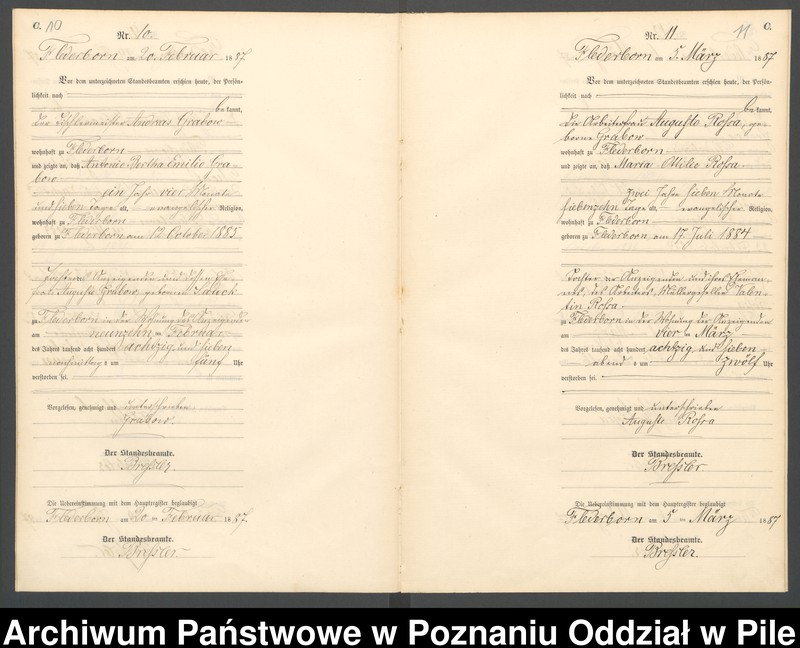 C. 10
Nr. 10.
Flederborn am 20. Februar 1887.
Vor dem unterzeichneten Standesbeamten erschien heute, der Persön-
lichkeit nach
bekannt,
der Tischlermeister Andreas Grabow
wohnhaft zu Flederborn
und zeigte an, daß Antonie Bertha Emilie Gra-
bow
ein Jahr vier Monate
und sieben Tage alt, evangelischer Religion,
wohnhaft zu Flederborn
geboren zu Flederborn am 12 October 1885
Tochter des Anzeigenden und dessen Ehe-
frau Auguste Grabow, geborene
zu Flederborn in der Wohnung des Anzeigenden
am neunzehn ten Februar
des Jahres tausend acht hundert achtzig und sieben
nachmittags um fünf Uhr
verstorben sei.
Vorgelesen, genehmigt und unterschrieben
Grabow.
Der Standesbeamte.
Bressler
Die Uebereinstimmung mit dem Hauptregister beglaubigt
Flederborn am 20 ten Februar 1887.
Der Standesbeamte.
Bressler
11 C.
Nr. 11.
Flederborn am 5. März 1887
Vor dem unterzeichneten Standesbeamten erschien heute, der Persön-
lichkeit nach
bekannt,
die Arbeiterfrau Auguste Rossa, ge-
borene Grabow
wohnhaft zu Flederborn
und zeigte an, daß Maria Ottilie Rossa
zwei Jahre sieben Monate
siebenzehn Tage alt, evangelischer Religion,
wohnhaft zu Flederborn
geboren zu Flederborn am 17. Juli 1884
Tochter der Anzeigenden und ihres Eheman-
nes, des Arbeiters, Müllergesellen Valen-
tin Rossa
zu Flederborn in der Wohnung der Anzeigenden
am vier ten März
des Jahres tausend acht hundert achtzig und sieben
abends um zwölf Uhr
verstorben sei.
Vorgelesen, genehmigt und unterschrieben
Auguste Rossa
Der Standesbeamte.
Bressler
Die Uebereinstimmung mit dem Hauptregister beglaubigt
Flederborn am 5 ten März 1887
Der Standesbeamte.
Bressler.
Archiwum Państwowe w Poznaniu Oddział w Pile